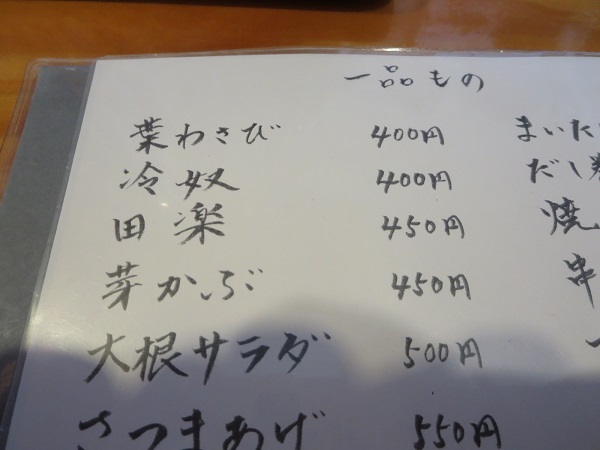 一品もの
葉わさび 400円
冷奴 400円
田楽 450円
芽かぶ 450円
大根サラダ 500円
さつまあげ 550円
まいた
だし
焼
串